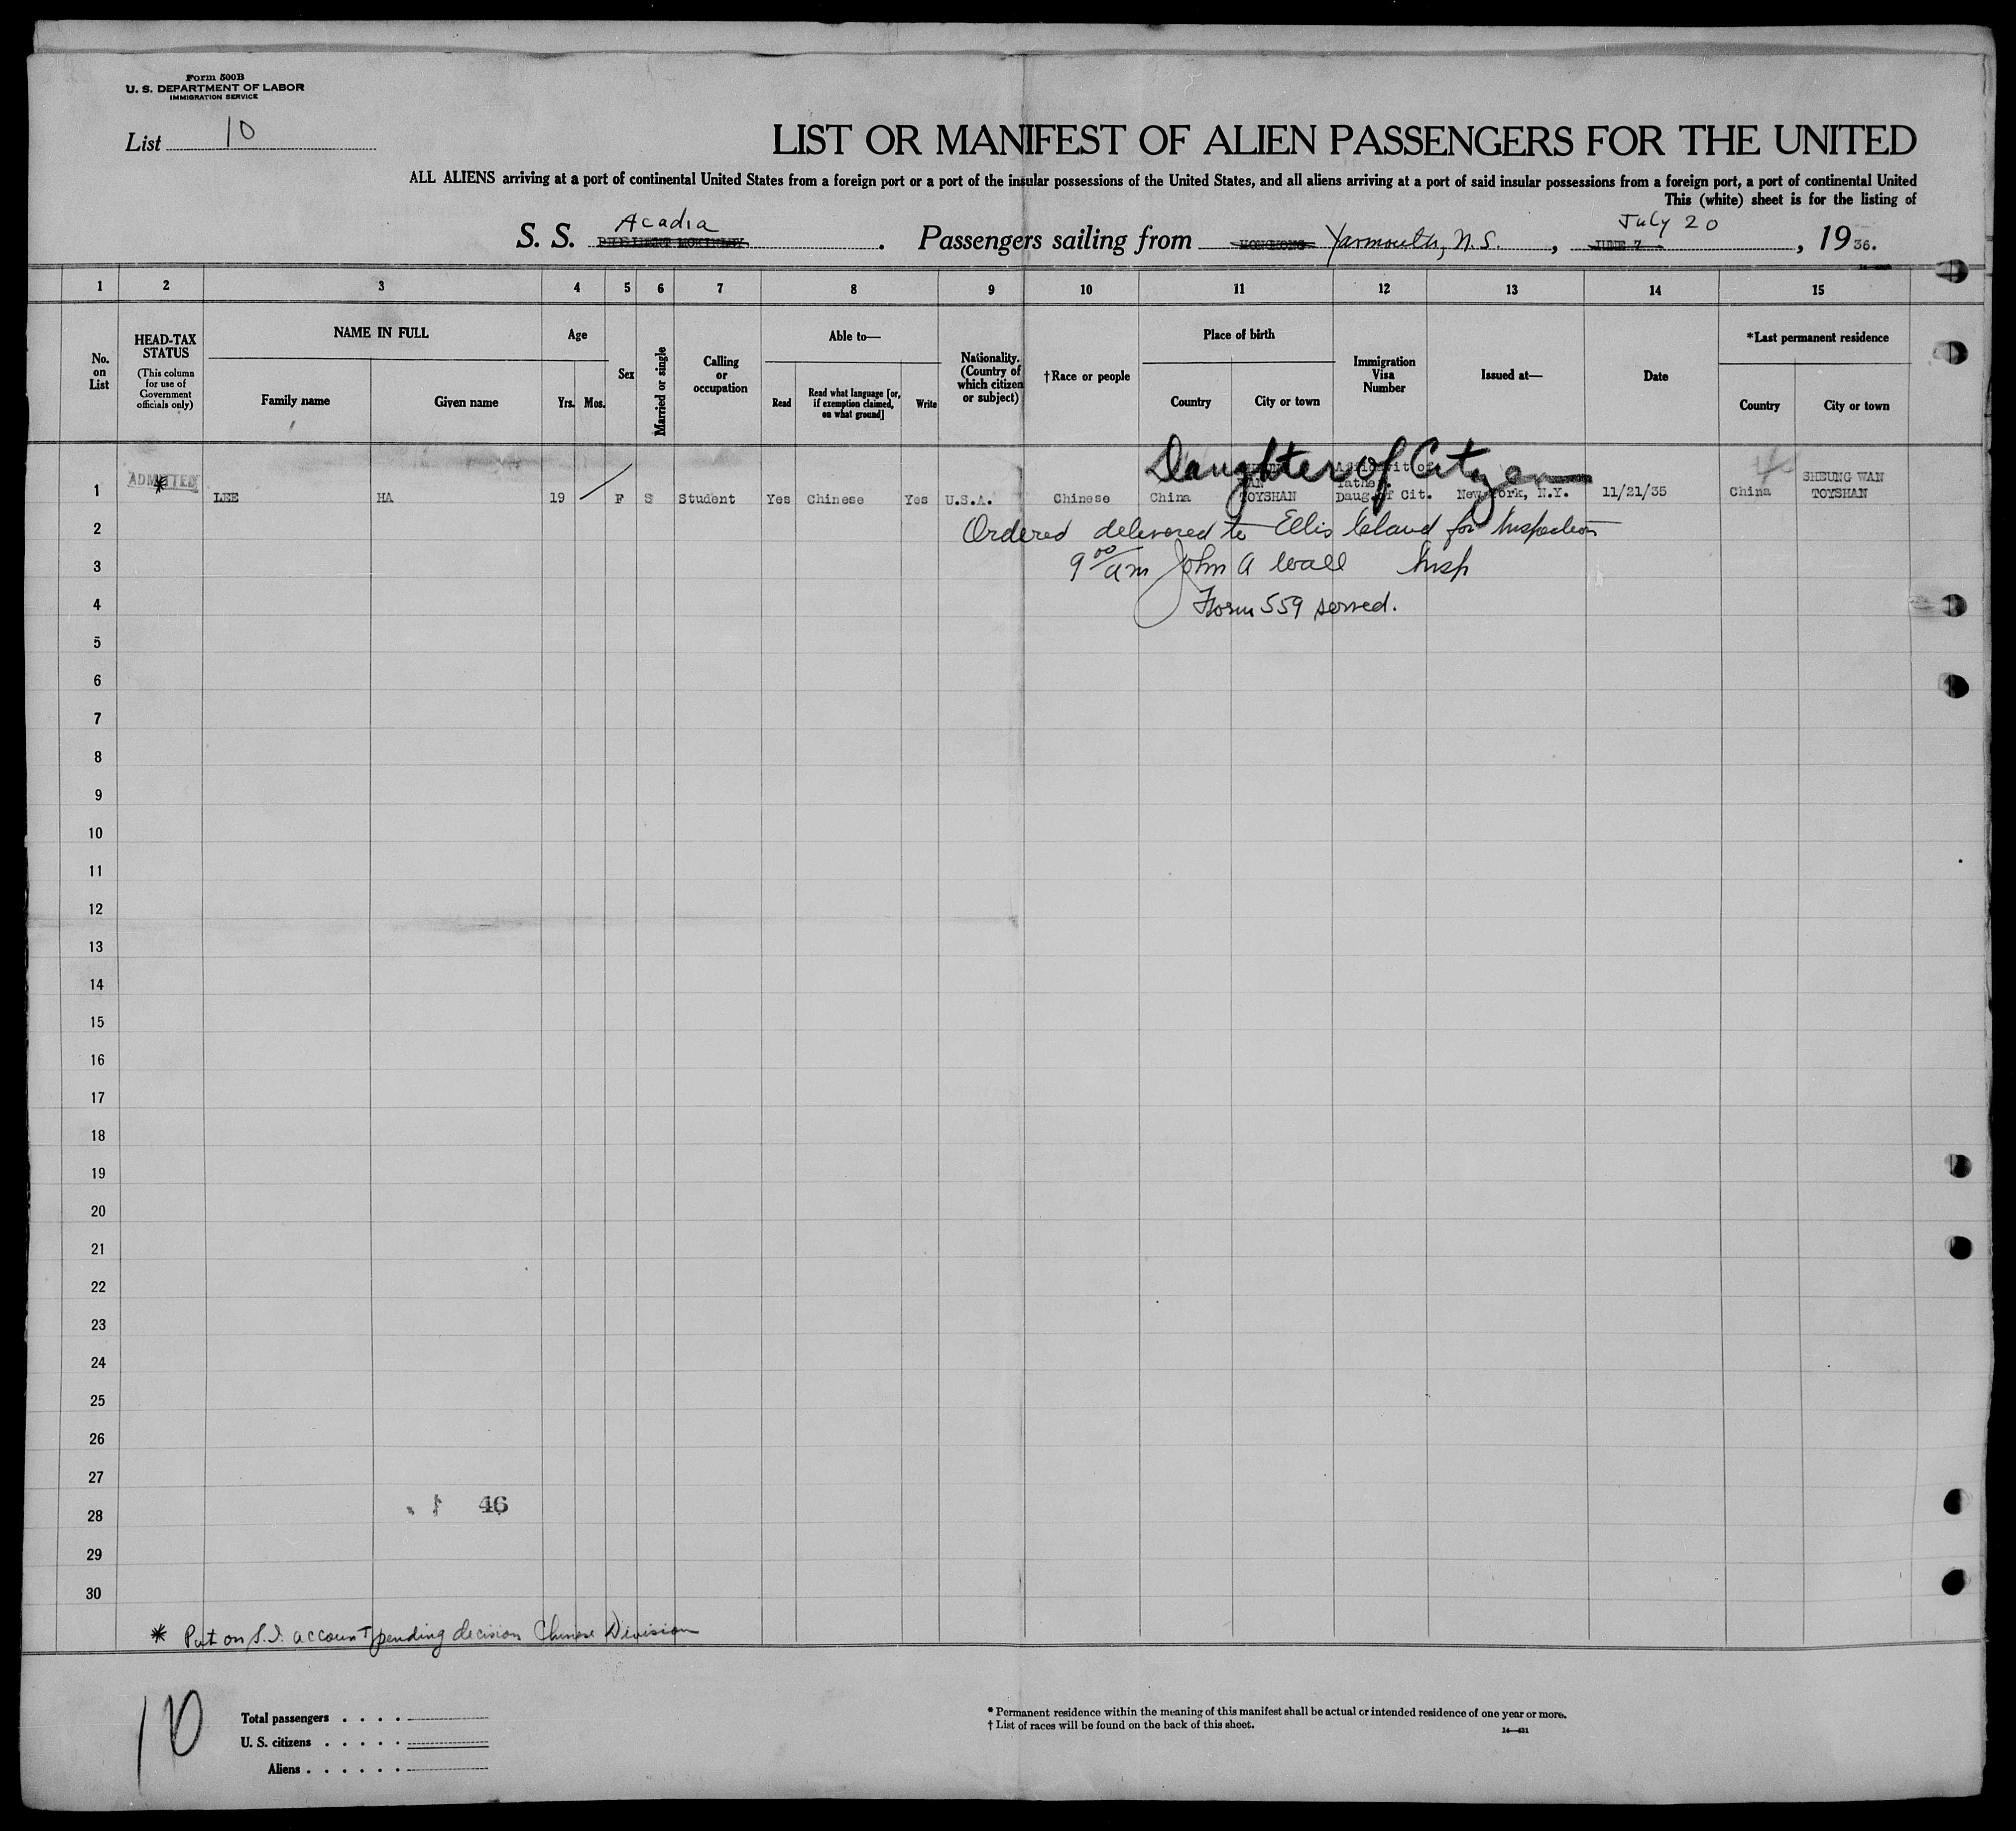 Form 500B
U. S. DEPARTMENT OF LABOR
IMMIGRATION SERVICE
List 10
LIST OR MANIFEST OF ALIEN PASSENGERS FOR THE UNITED
ALL ALIENS arriving at a port of continental United States from a foreign port or a port of the insular possessions of the United States, and all aliens arriving at a port of said insular possessions from a foreign port, a port of continental United
This (white) sheet is for the listing of
S. S. Acadia . Passengers sailing from HONGKONG Yarmouth, N.S. , July 20 JUNE 7 , 1936.
1 2 3 4 5 6 7 8 9 10 11 12 13 14 15
No. on List
HEAD-TAX STATUS
(This column for use of Government officials only)
NAME IN FULL
Family name
Given name
Age
Yrs. Mos.
Sex
Married or single
Calling or occupation
Able to—
Read
Read what language [or, if exemption claimed, on what ground]
Write
Nationality. (Country of which citizen or subject)
†Race or people
Place of birth
Country
City or town
Immigration Visa Number
Issued at—
Date
*Last permanent residence
Country
City or town
Daughter of Citizen
ADMITTED
*
Affidavit of
SHEUNG WAN
1 LEE HA 19 F S Student Yes Chinese Yes U.S.A. Chinese China TOYSHAN Daug. of Cit. New York, N.Y. 11/21/35 China TOYSHAN
2 Ordered delivered to Ellis Island for Inspection
3 9 00 am John A Wall Insp
4 Form 559 served.
5
6
7
8
9
10
11
12
13
14
15
16
17
18
19
20
21
22
23
24
25
26
27
46
28
29
30
* Put on S.I. account pending decision Chinese Division
10
Total passengers . . . .
U. S. citizens . . . . .
Aliens . . . . . .
* Permanent residence within the meaning of this manifest shall be actual or intended residence of one year or more.
† List of races will be found on the back of this sheet.